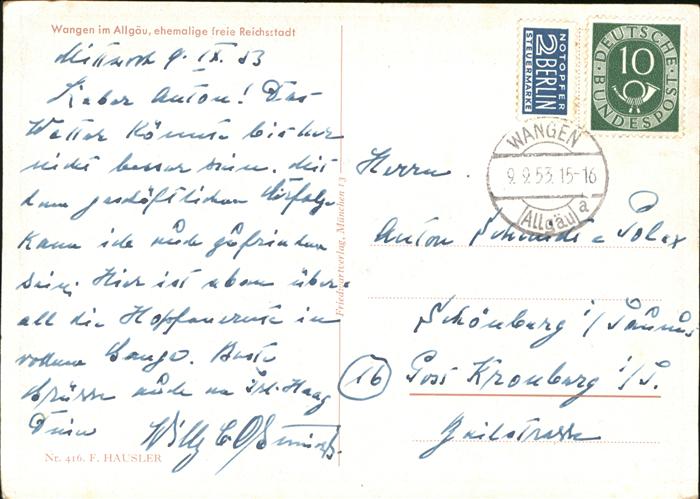 Wangen im Allgäu, ehemalige freie Reichsstadt
Mittwoch 9. IX. 53
Lieber Anton! Das
Wetter könnte bisher
nicht besser sein. Mit
dem geschäftlichen Erfolge
kann ich auch zufrieden
sein. Hier ist eben über-
all die Hopfenernte in
vollem Gange. Beste
Grüsse auch an Frl. Haag
Dein Willy
Nr. 416. F. HÄUSLER
Friedmartverlag, München 13
NOTOPFER
2 BERLIN
STEUERMARKE
DEUTSCHE BUNDESPOST
10
WANGEN
9.9.53.15-16
(Allgäu) a
Herrn
Anton
Schönberg i/Taunus
(16) Post Kronberg i/T.